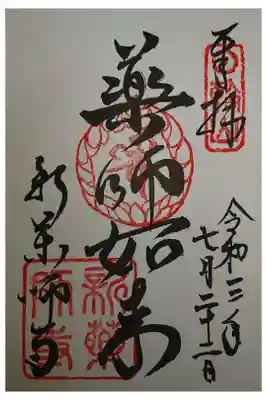 奉拝
令和三年
七月二十二日
薬師如来
新薬師寺
新薬
師寺